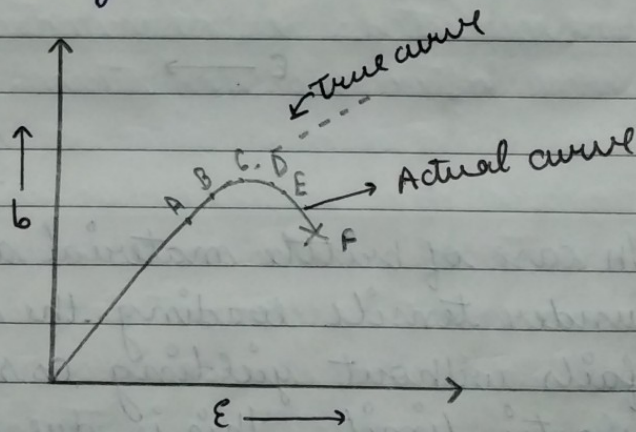 True curve
Actual curve
C. D
B E
A
F
σ
ε